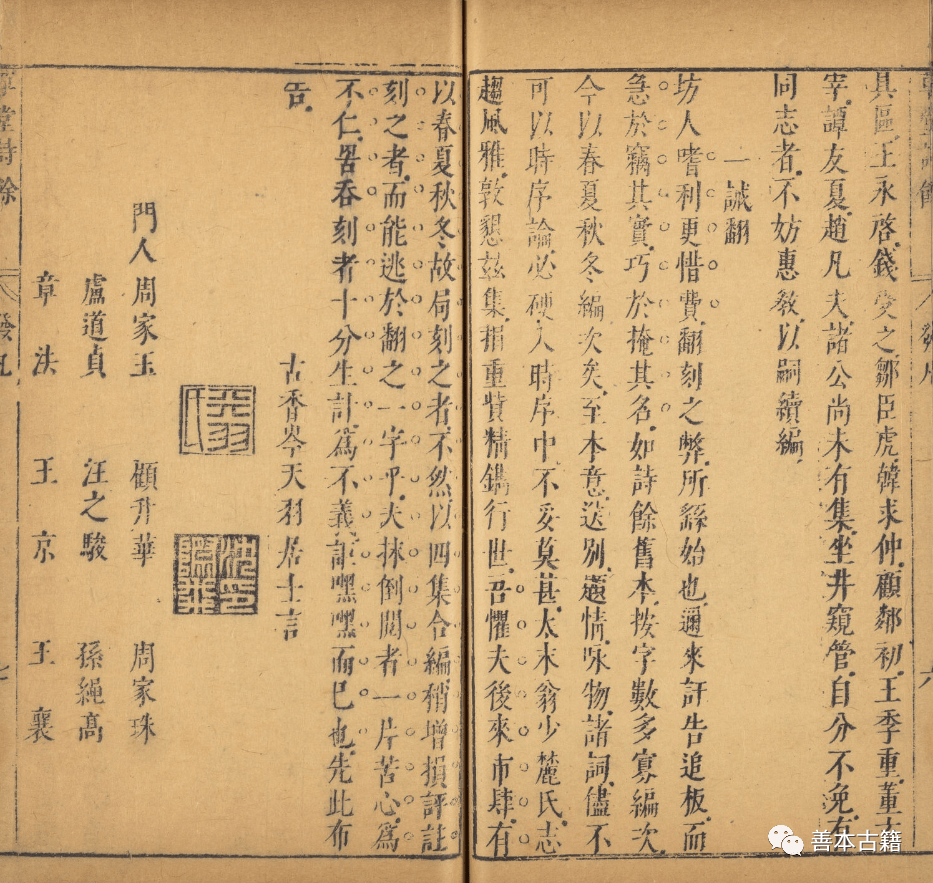 具區王永啓錢受之鄒臣虎韓求仲顧鄰初王季重董玄
宰譚友夏趙凡夫諸公尚未有集坐井窺管自分不免有
同志者不妨惠教以嗣續編
一誡翻
坊人嗜利更惜費翻刻之弊所繇始也邇來訐告追板而
急於竊其實巧於掩其名如詩餘舊本按字數多寡編次
今以春夏秋冬編次矣至本意送別題情咏物諸詞儘不
可以時序論必硬入時序中不妥莫甚太末翁少麓氏志
趨風雅敦懇茲集捐重貲精鐫行世吾懼夫後來市肆有
以春夏秋冬故局刻之者不然以四集合編稍增損評註
刻之者而能逃於翻之一字乎夫抹倒閱者一片苦心爲
不仁罟吞刻者十分生計爲不義詎嘿嘿而已也先此布
告
古香岑天羽居士言
門人周家玉 顧升華 周家珠
盧道貞 汪之駿 孫繩髙
章法 王京 王襄
發凡
七
善本古籍